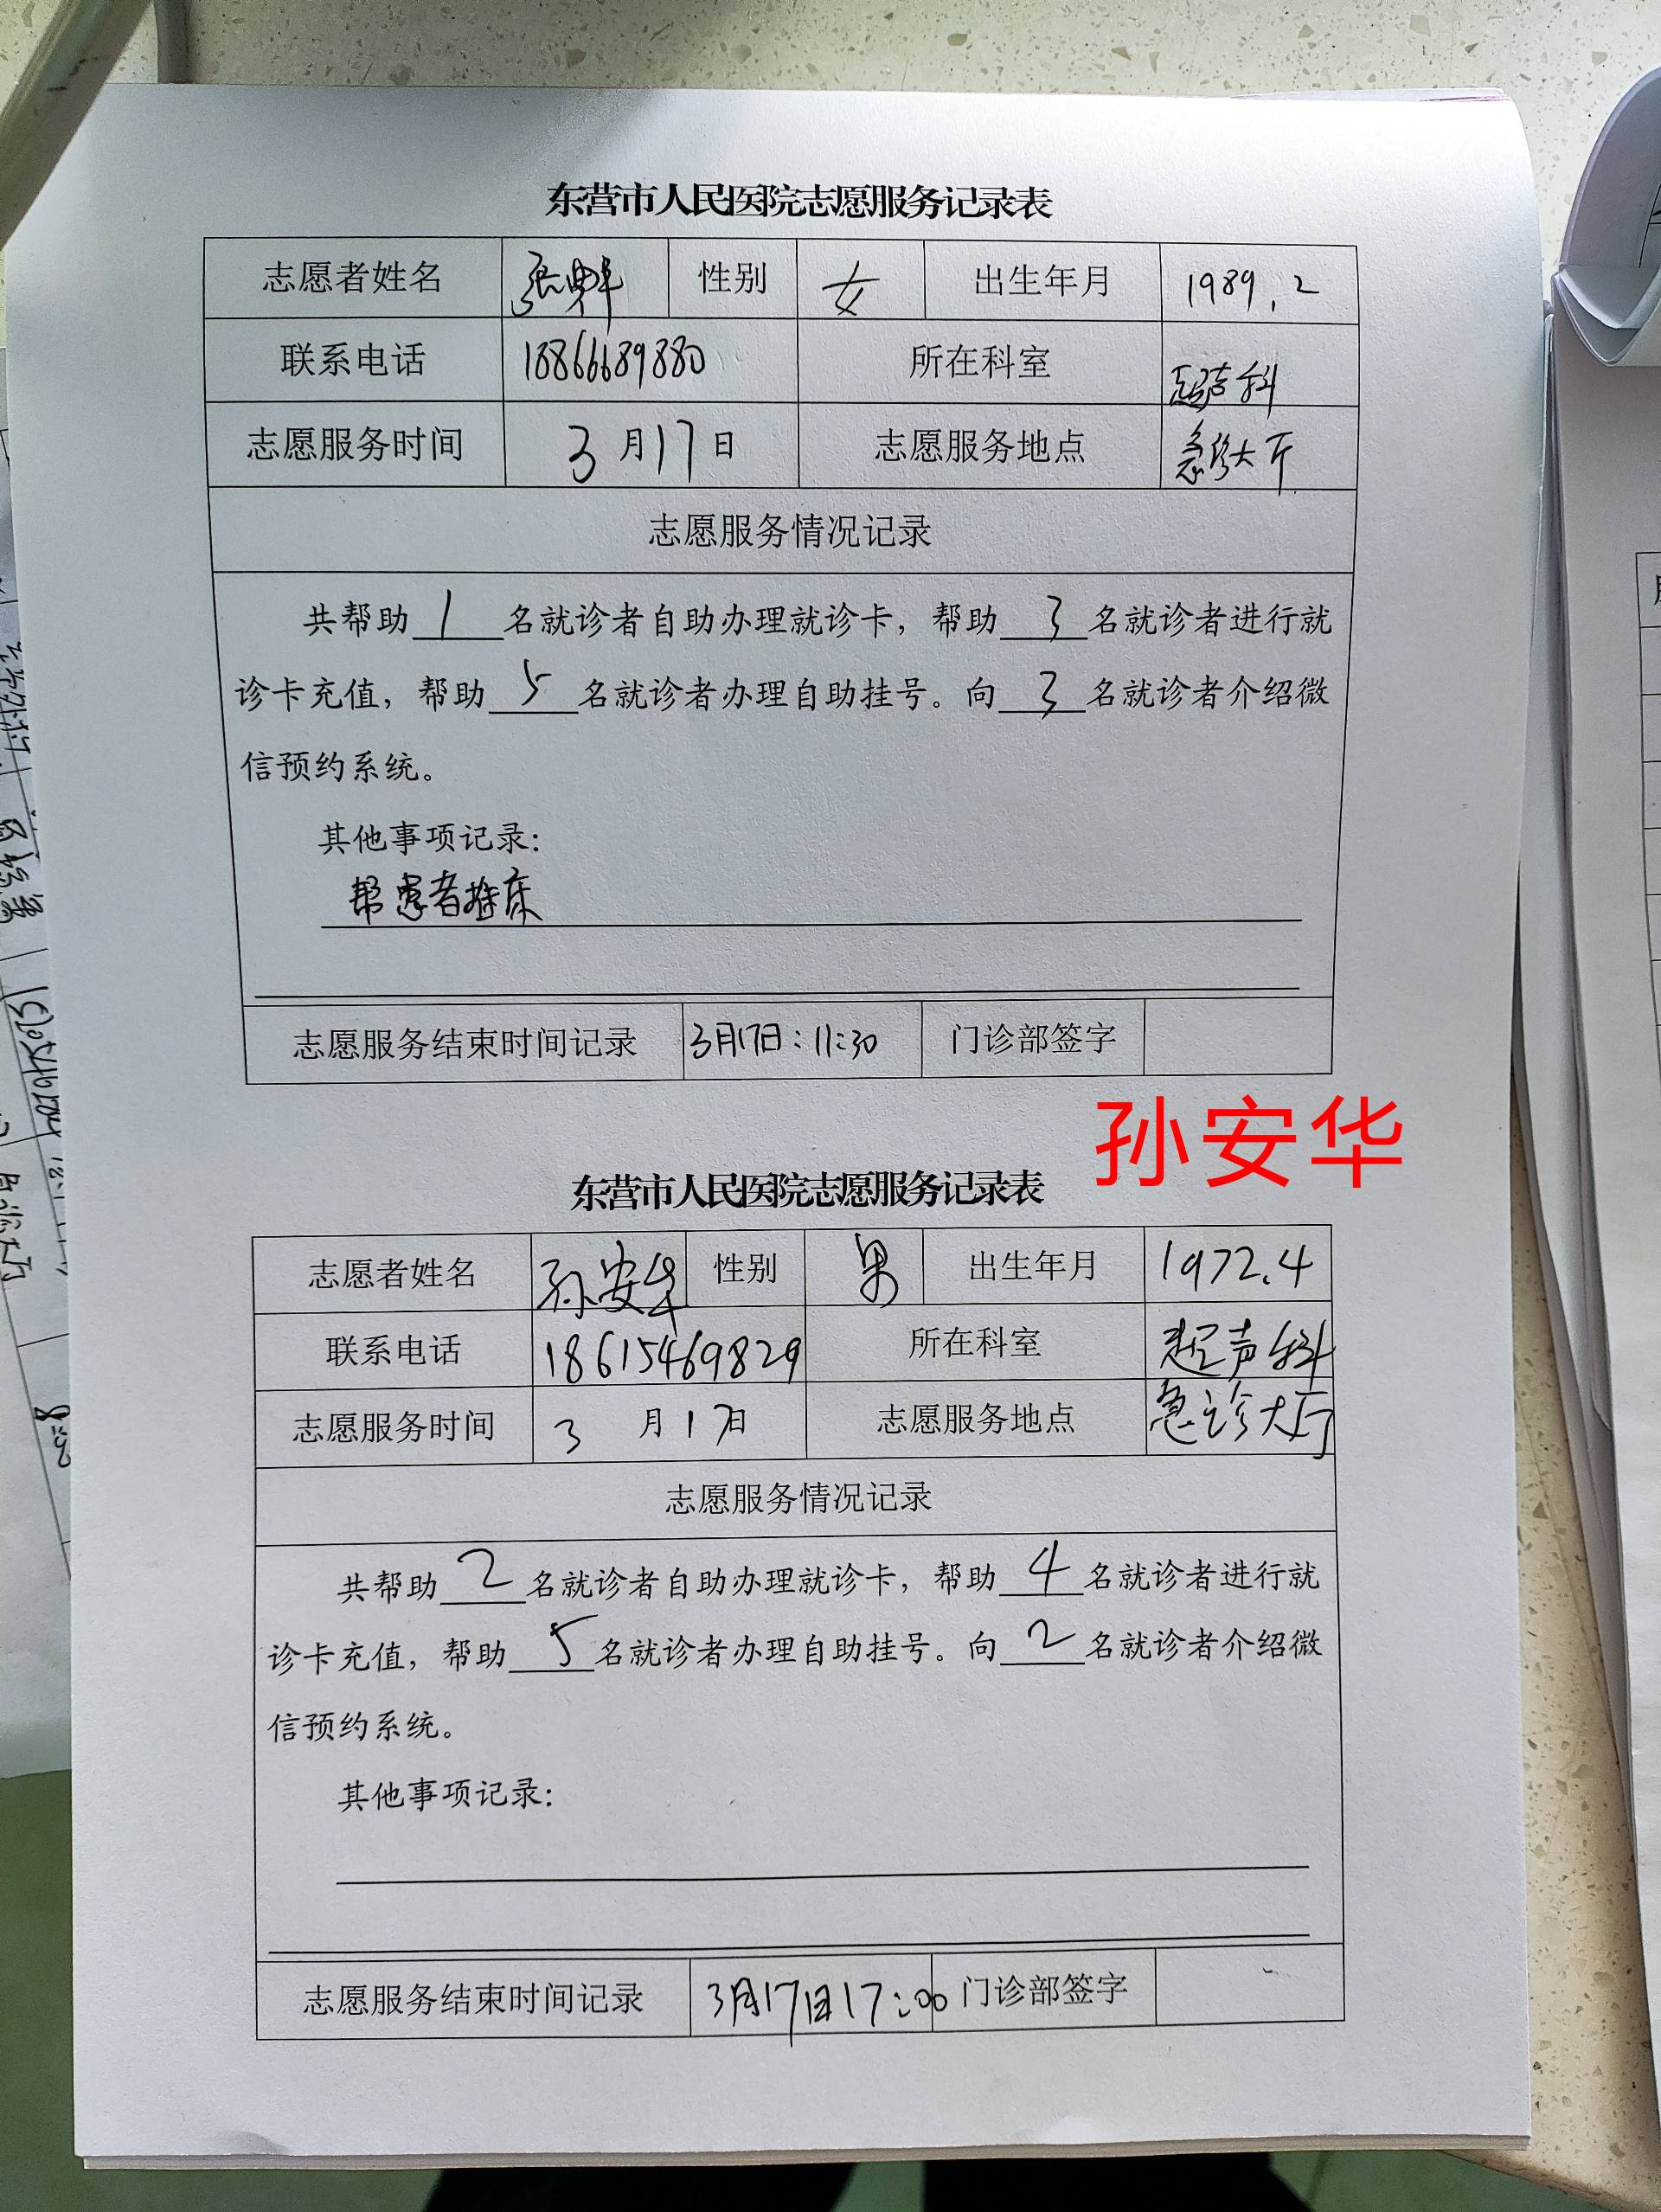 东营市人民医院志愿服务记录表
志愿者姓名 张 性别 女 出生年月 1989.2
联系电话 18866689880 所在科室 超声科
志愿服务时间 3月17日 志愿服务地点 急诊大厅
志愿服务情况记录
共帮助1名就诊者自助办理就诊卡，帮助3名就诊者进行就
诊卡充值，帮助5名就诊者办理自助挂号。向3名就诊者介绍微
信预约系统。
其他事项记录：
帮患者推床
志愿服务结束时间记录 3月17日：11:30 门诊部签字
孙安华
东营市人民医院志愿服务记录表
志愿者姓名 孙安华 性别 男 出生年月 1972.4
联系电话 18615469829 所在科室 超声科
志愿服务时间 3月17日 志愿服务地点 急诊大厅
志愿服务情况记录
共帮助2名就诊者自助办理就诊卡，帮助4名就诊者进行就
诊卡充值，帮助5名就诊者办理自助挂号。向2名就诊者介绍微
信预约系统。
其他事项记录：
志愿服务结束时间记录 3月17日17:00 门诊部签字